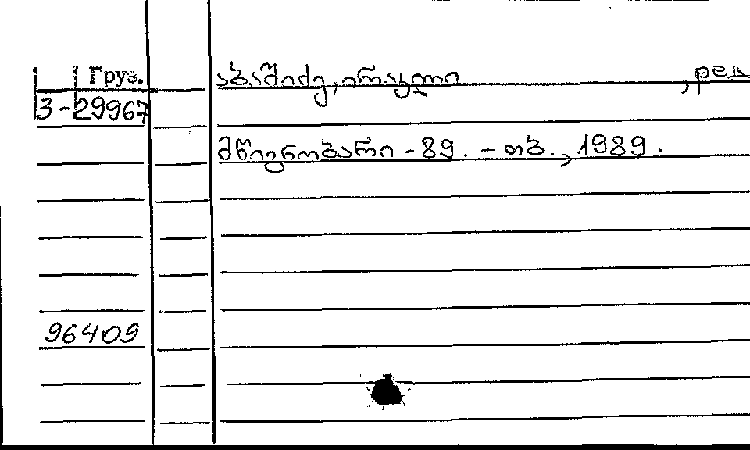 Груз. აბაშიძე, ირაკლი , ред
3-29967
მწიგნობარი - 89. - თბ., 1989.
96409